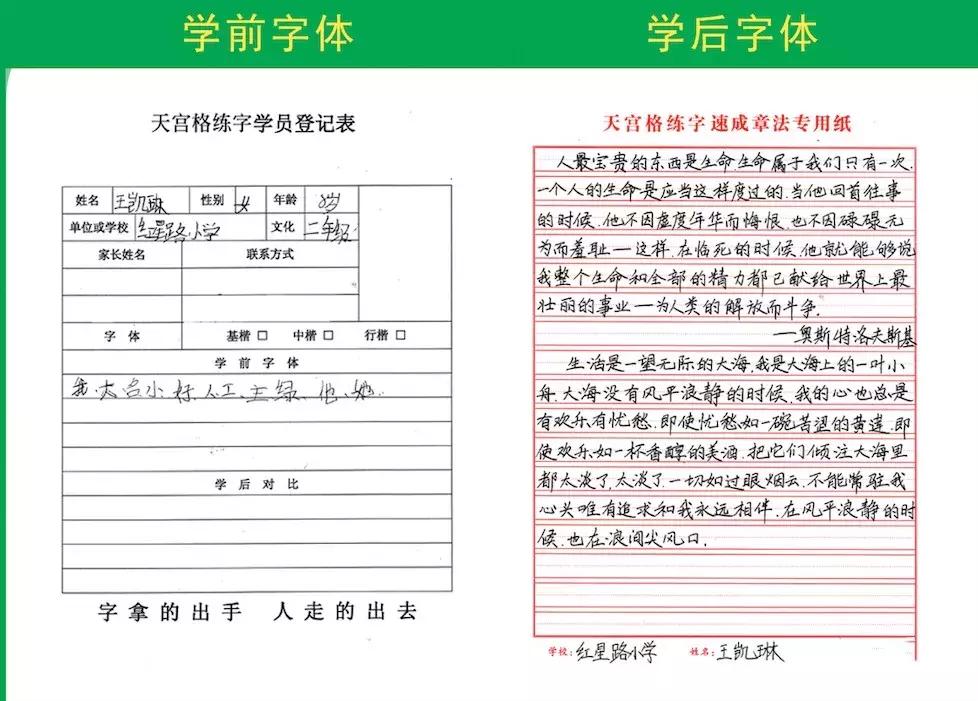 学前字体
学后字体
天宫格练字学员登记表
姓名 王凯琳 性别 女 年龄 8岁
单位或学校 红星路小学 文化 二年级
家长姓名 联系方式
字体 基楷 □ 中楷 □ 行楷 □
学前字体
我 大 名 小 好 人 工 主 绿 他 她
学后对比
字拿的出手 人走的出去
天宫格练字速成章法专用纸
人最宝贵的东西是生命.生命属于我们只有一次.
一个人的生命是应当这样度过的.当他回首往事
的时候.他不因虚度年华而悔恨.也不因碌碌无
为而羞耻一这样.在临死的时候.他就能够说
我整个生命和全部的精力都已献给世界上最
壮丽的事业一为人类的解放而斗争.
—奥斯特洛夫斯基
生活是一望无际的大海,我是大海上的一叶小
舟.大海没有风平浪静的时候,我的心也总是
有欢乐有忧愁.即使忧愁如一碗苦涩的黄莲.即
使欢乐如一杯香醇的美酒.把它们倾注大海里
都太淡了,太淡了.一切如过眼烟云.不能常驻我
心头唯有追求和我永远相伴.在风平浪静的时
候.也在浪间尖风口.
学校:红星路小学 姓名:王凯琳